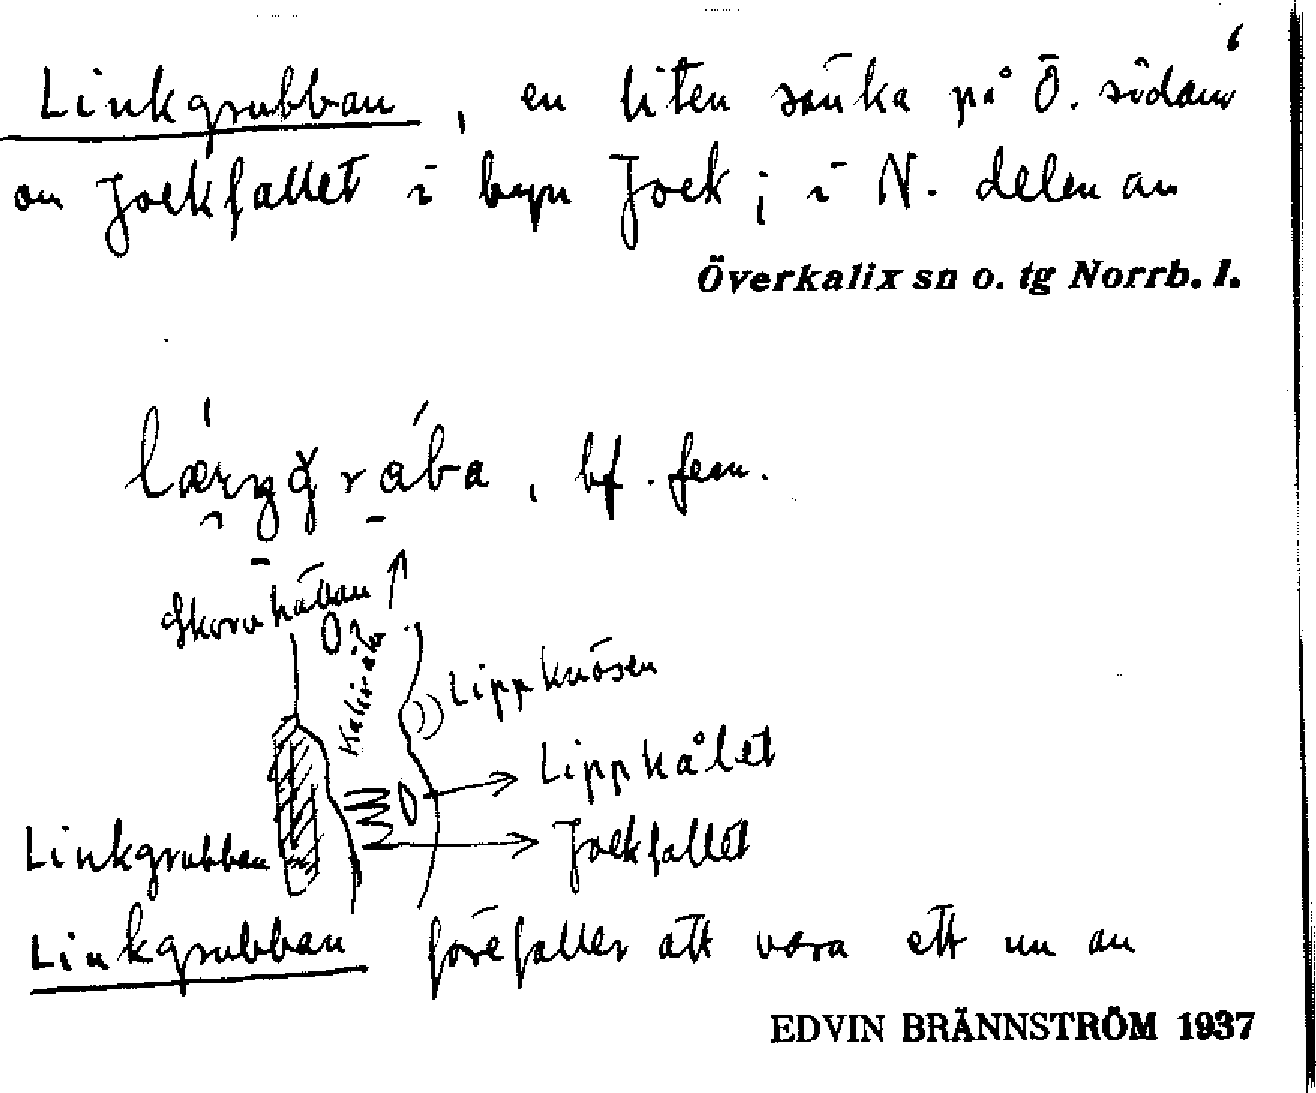 Linkgrubban, en liten sänka på Ö. sidan
om Jockfallet i byn Jock; i N. delen av
Överkalix sn o. tg Norrb. l.
bf. fem.
Kalixälv
Lippknösen
Lippkålet
Jockfallet
Linkgrubban
Linkgrubban förefaller att vara ett nu av
EDVIN BRÄNNSTRÖM 1937